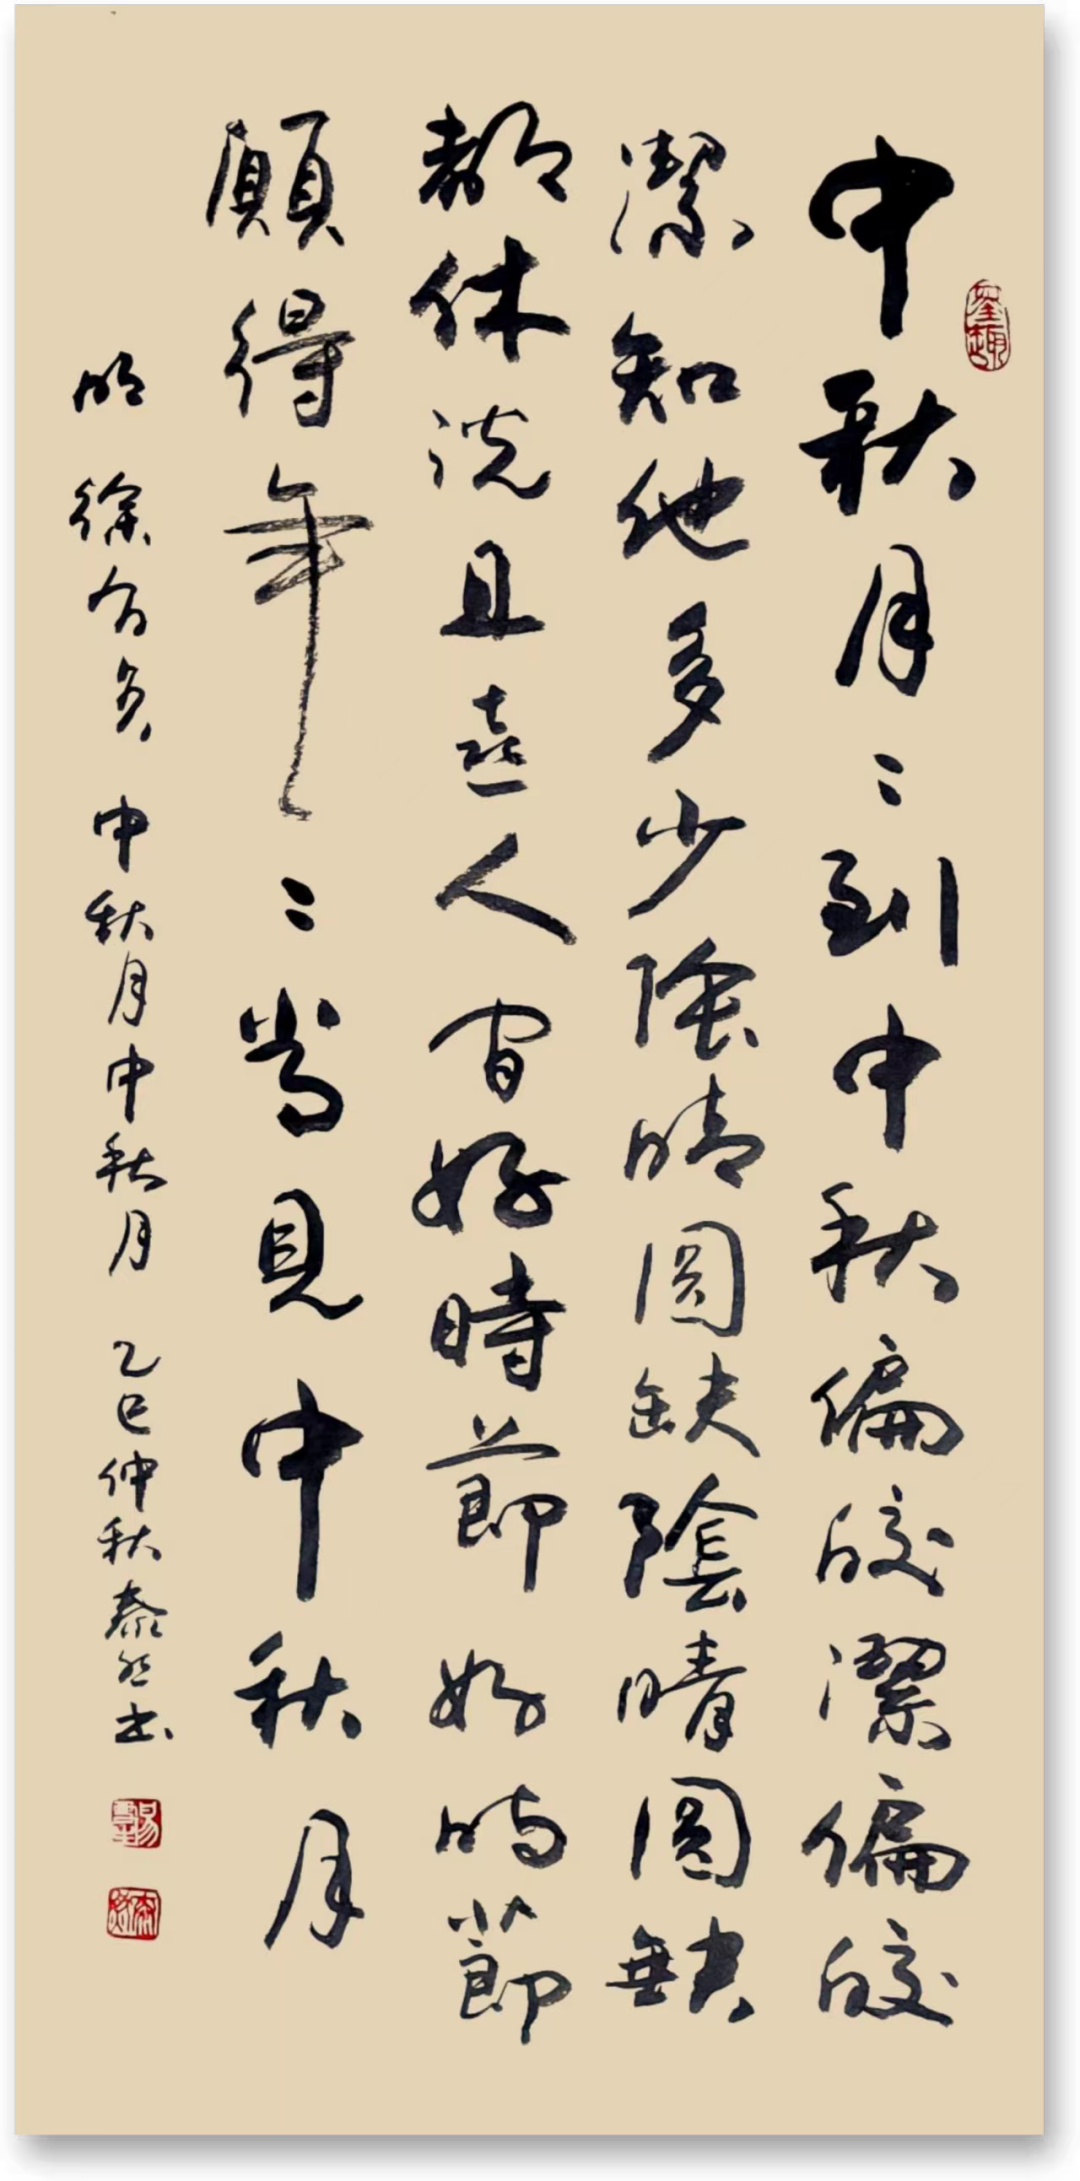 中秋月〻到中秋偏皎潔偏皎
潔知他多少陰晴圓缺陰晴圓缺
都休說且喜人間好時節好時節
願得年〻常見中秋月
明 徐有貞 中秋月中秋月 乙巳仲秋泰然书